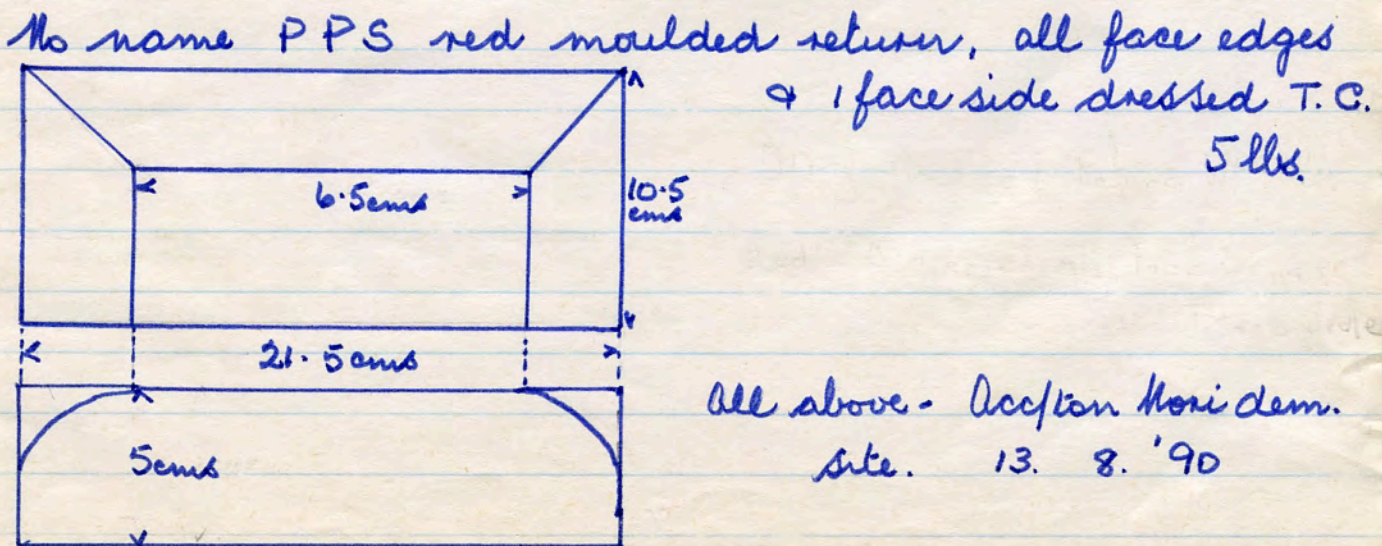 No name PPS red moulded return, all face edges
& 1 face side dressed T.C.
5 lbs.
6.5cms
10.5
cms
21.5cms
5cms
All above - Acc/ton dem.
site. 13. 8. '90